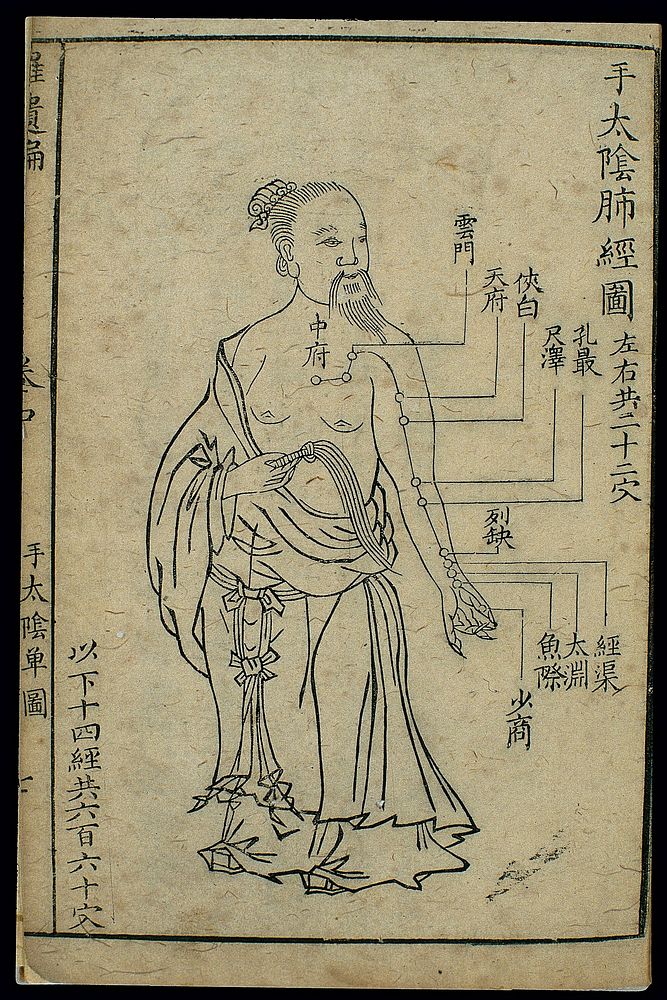 手太陰肺經圖 左右共二十二穴
孔最
尺澤
俠白
天府
雲門
中府
列缺
經渠
太淵
魚際
少商
以下十四經共六百六十穴
卷四
手太陰单圖